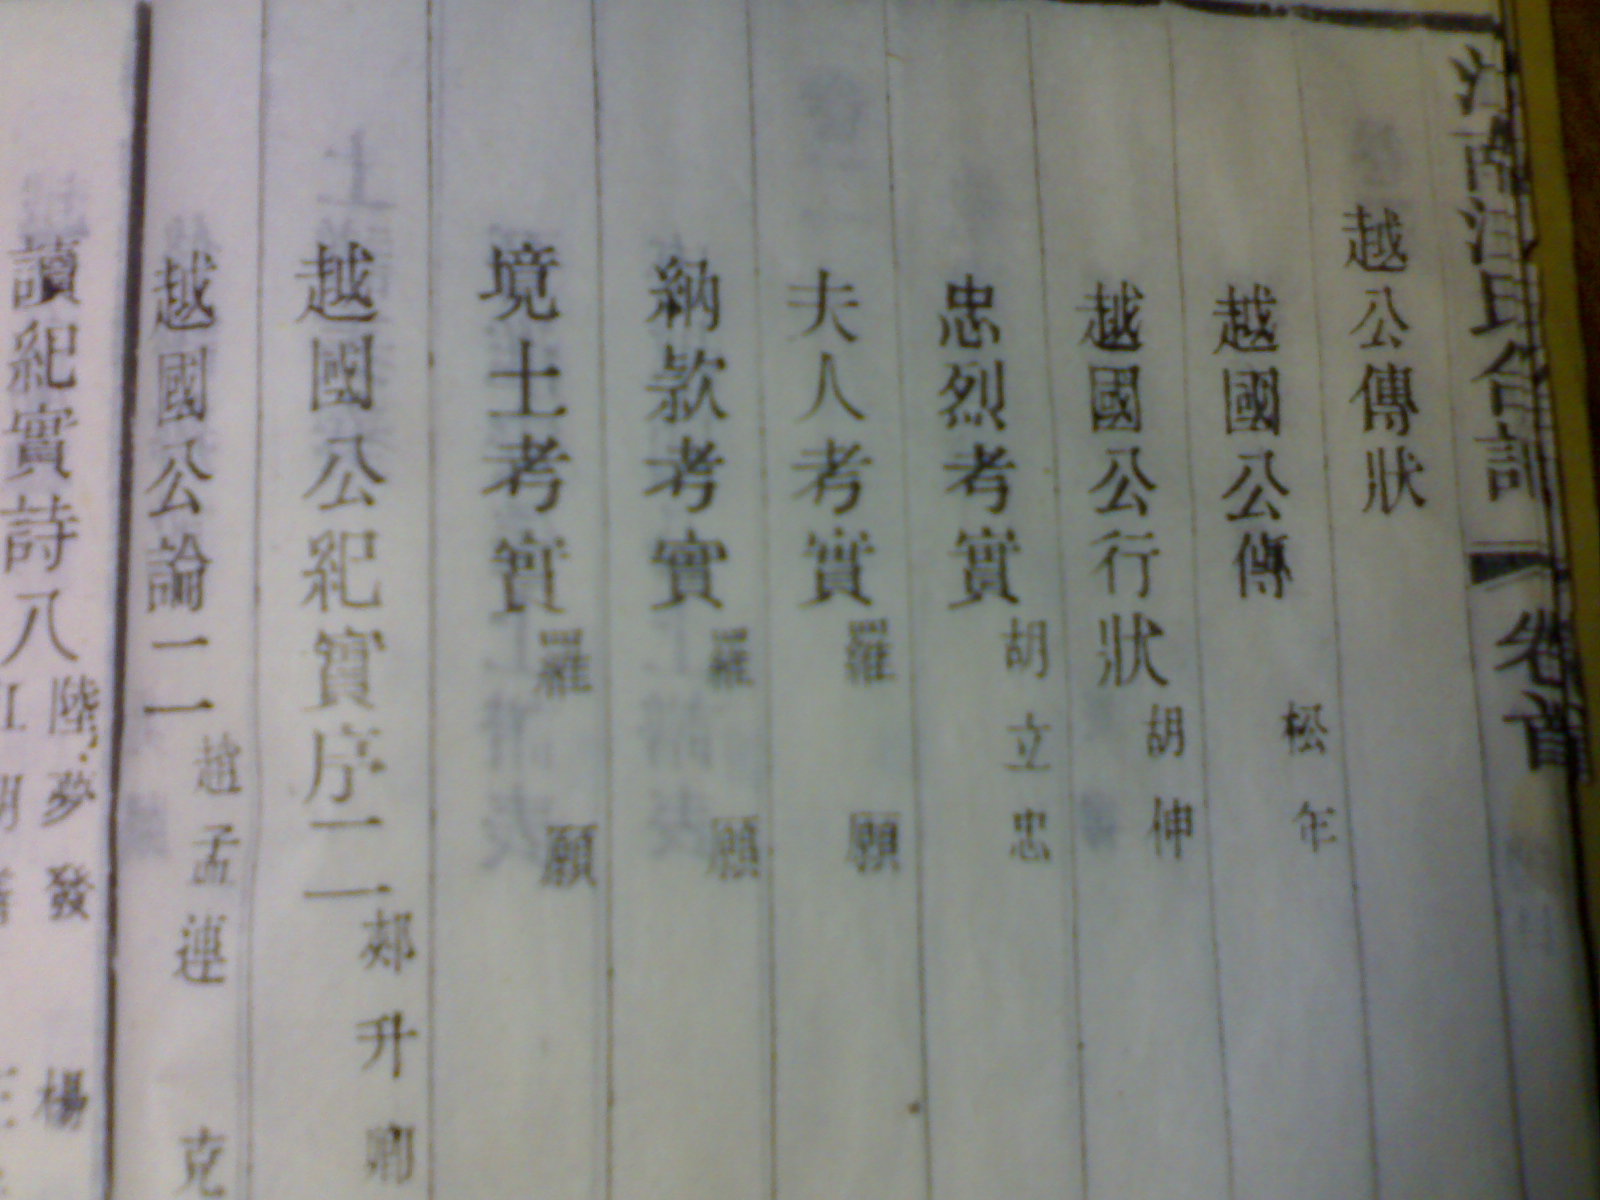 越公傳狀
越國公傳 松年
越國公行狀 胡伸
忠烈考實 胡立忠
夫人考實 羅願
納款考實 羅願
境土考實 羅願
越國公紀實序二 鄭升卿
越國公論二 趙孟連 克
讀紀實詩八 陸夢發 楊